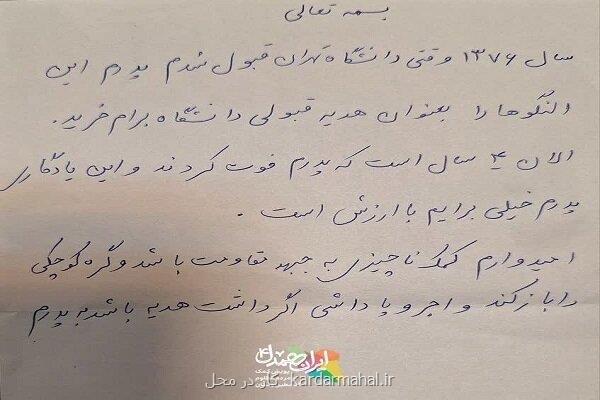 بسمه تعالی
سال ۱۳۷۶ وقتی دانشگاه تهران قبول شدم پدرم این
النگوها را بعنوان هدیه قبولی دانشگاه برام خرید.
الان ۴ سال است که پدرم فوت کردند و این یادگاری
پدرم خیلی برایم با ارزش است.
امیدوارم کمک ناچیزی به جبهه مقاومت باشد و گره کوچکی
را باز کند و اجر و پاداشی اگر داشت هدیه باشد به پدرم
ایران همدل
kardarmahal.ir کار در محل